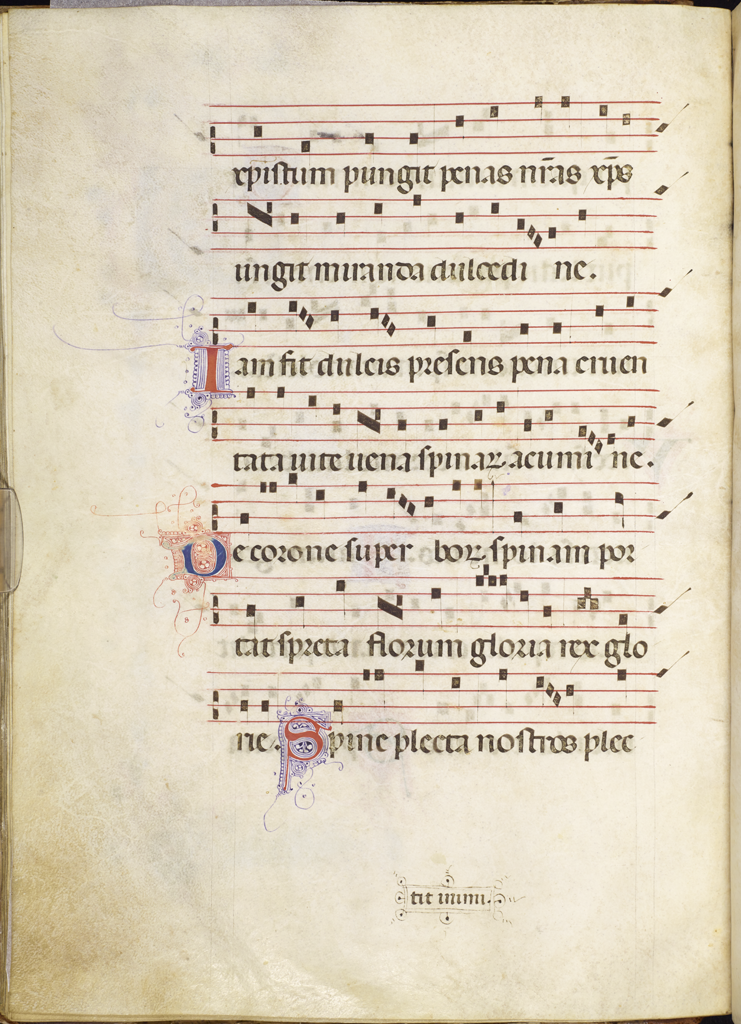 xpistum pungit penas nr̄as xp̄s
ungit miranda dulcedi ne.
Iam fit dulcis presens pena cruen
tata uite uena spinaꝝ acumi ne.
De corone super boꝝ spinam por
tat spreta florum gloria rex glo
rie. Spine plecta nostros plec
tit inimi.